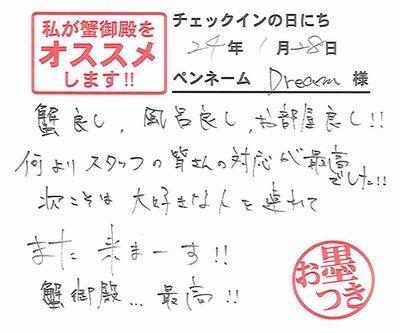 私が蟹御殿を
オススメ
します!!
チェックインの日にち
24年 1月28日
ペンネーム Dream 様
蟹良し、風呂良し、お部屋良し!!
何よりスタッフの皆さんの対応が最高
でした!!
次こそは大好きな人を連れて
また来まーす!!
蟹御殿…最高!!
お墨
つき